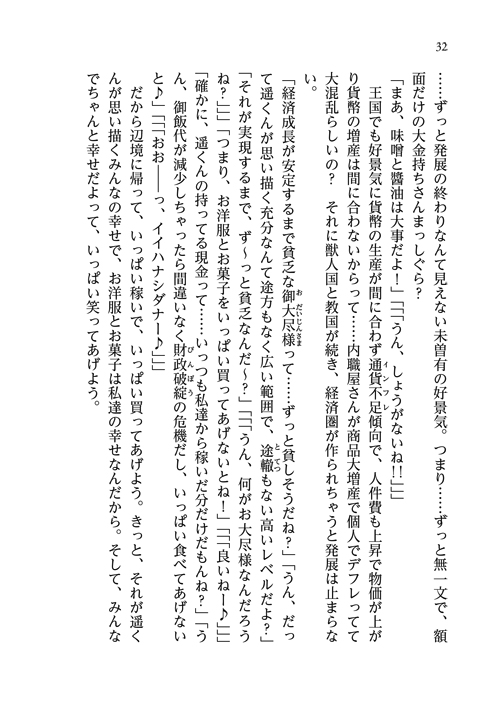 32
……ずっと発展の終わりなんて見えない未曽有の好景気。つまり……ずっと無一文で、額
面だけの大金持ちさんまっしぐら?
「まあ、味噌と醬油は大事だよ!」「「「うん、しょうがないね!!」」」
王国でも好景気に貨幣の生産が間に合わず通貨不足傾向で、人件費も上昇で物価が上が
インフレ
り貨幣の増産は間に合わないからって……内職屋さんが商品大増産で個人でデフレってて
大混乱らしいの? それに獣人国と教国が続き、経済圏が作られちゃうと発展は止まらな
い。
「経済成長が安定するまで貧乏な御大尽様って……ずっと貧しそうだね?」「うん、だっ
お だいじんさま
て遥くんが思い描く充分なんて途方もなく広い範囲で、途轍もない高いレベルだよ?」
とてつ
「それが実現するまで、ず~っと貧乏なんだ~?」「「「うん、何がお大尽様なんだろう
ね?」」」「つまり、お洋服とお菓子をいっぱい買ってあげないとね!」「「「良いねー♪」」」
「確かに、遥くんの持ってる現金って……いっつも私達から稼いだ分だけだもんね?」「う
ん、御飯代が減少しちゃったら間違いなく財政破綻の危機だし、いっぱい食べてあげない
びんぼう
と♪」「「「おお――っ、イイハナシダナー♪」」」
だから辺境に帰って、いっぱい稼いで、いっぱい買ってあげよう。きっと、それが遥く
んが思い描くみんなの幸せで、お洋服とお菓子は私達の幸せなんだから。そして、みんな
でちゃんと幸せだよって、いっぱい笑ってあげよう。